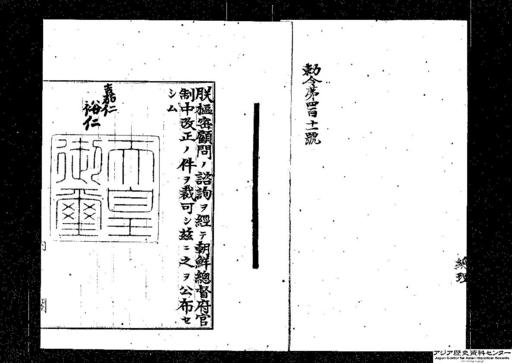 勅令第四百十二號
朕樞密顧問ノ諮詢ヲ經テ朝鮮總督府官
制中改正ノ件ヲ裁可シ茲ニ之ヲ公布セ
シム
嘉仁
裕仁
天皇
御璽
内閣
總理
アジア歴史資料センター
Japan Center for Asian Historical Records